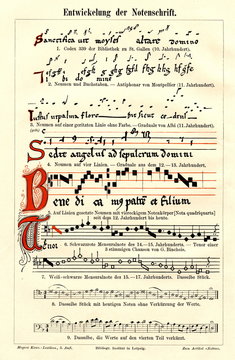 Entwickelung der Notenschrift.
Sanctifica vit moyses altare domino
1. Codex 339 der Bibliothek zu St. Gallen (10. Jahrhundert).
2. Neumen und Buchstaben. — Antiphonar von Montpellier (11. Jahrhundert).
3. Neumen auf einer geritzten Linie ohne Farbe. — Graduale von Albi (11. Jahrhundert).
Sedit angelus ad sepulcrum domini
4. Neumen auf vier Linien. — Graduale aus dem 12.–13. Jahrhundert.
Bene di ca my patrē et filium
5. Auf Linien gesetzte Neumen mit viereckigem Notenkörper (Nota quadriquarta)
seit dem 12. Jahrhundert bis heute.
6. Schwarznote Mensuralnote des 14.–15. Jahrhunderts. — Tenor einer
3stimmigen Chanson von G. Binchois.
7. Weiß-schwarze Mensuralnote des 15.–17. Jahrhunderts. Dasselbe Stück.
8. Dasselbe Stück mit heutigen Noten ohne Verkürzung der Werte.
9. Dasselbe, die Werte auf den vierten Teil verkürzt.
Meyers Konv.-Lexikon, 5. Aufl.
Bibliogr. Institut in Leipzig.
Zum Artikel «Noten».